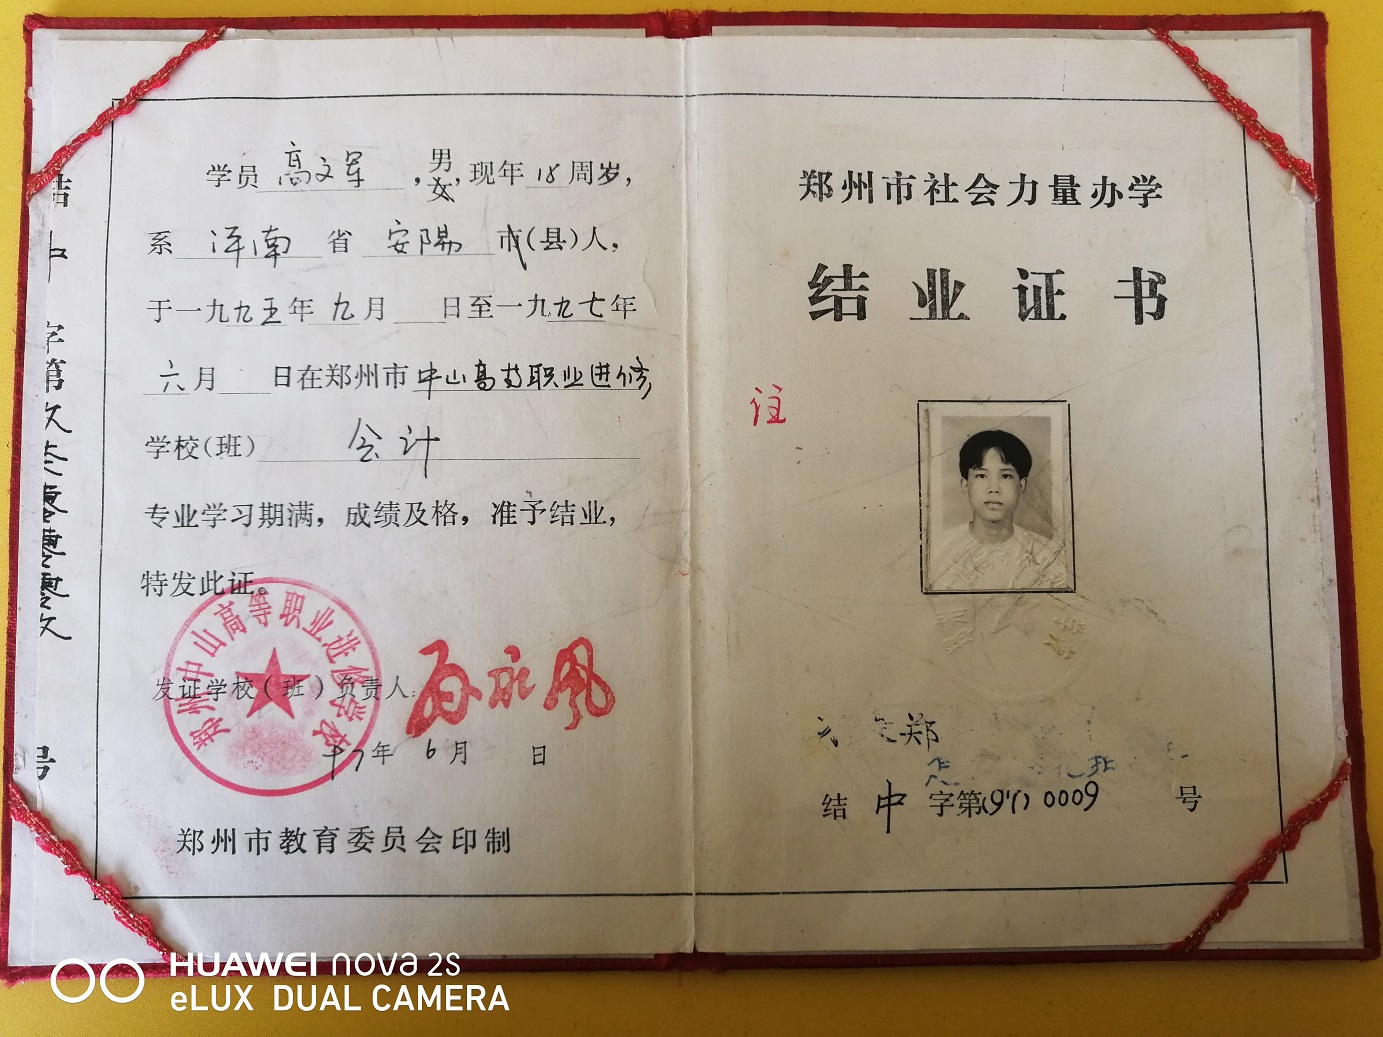 学员 高文军 ，男女，现年 18 周岁，
系 河南 省 安阳 市(县)人，
于一九九五年九月 日至一九九七年
六月 日在郑州市中山高等职业进修
学校(班) 会计
专业学习期满，成绩及格，准予结业，
特发此证。
郑州中山高等职业进修学校
发证学校(班)负责人：
年 6月 日
郑州市教育委员会印制
结 中 字第
号
郑州市社会力量办学
结业证书
注
郑
结 中 字第(97) 0009 号
HUAWEI nova 2S
eLUX DUAL CAMERA